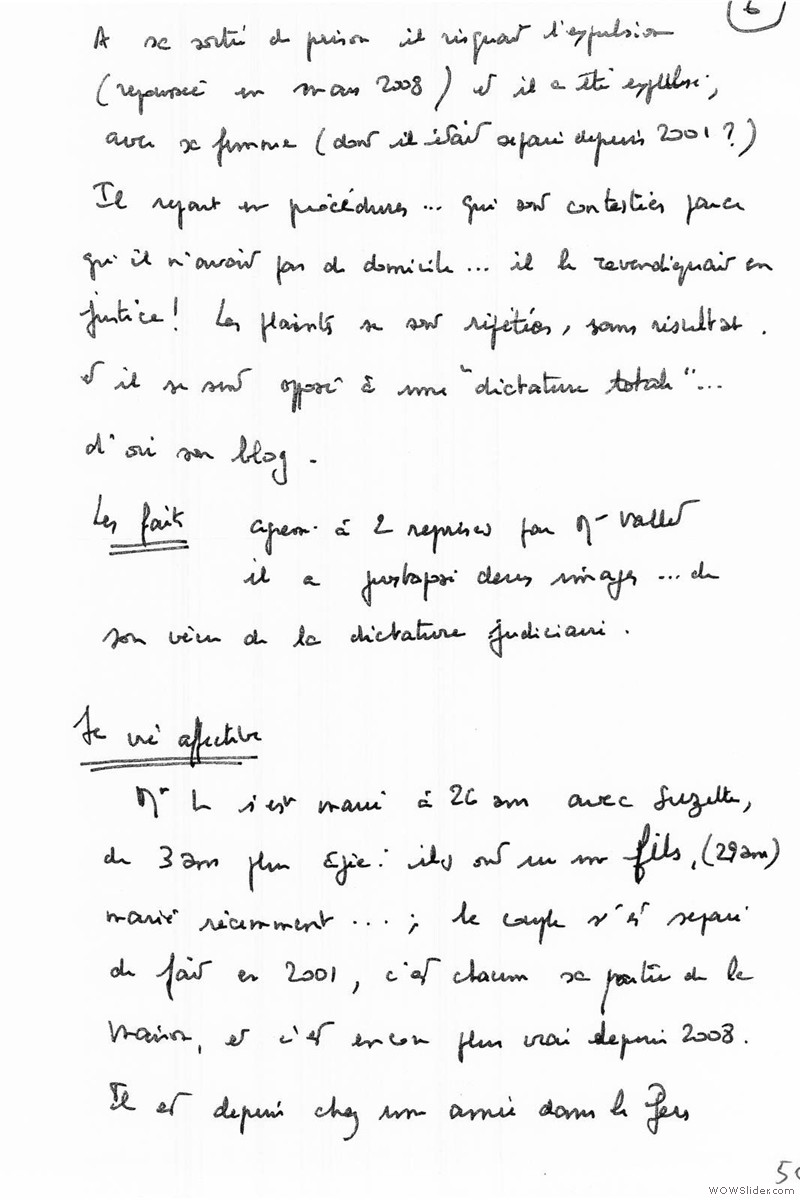 6
A sa sortie de prison il risquait l'expulsion
(repoussée en mars 2008) et il a été expulsé,
avec sa femme (dont il était séparé depuis 2001 ?)
Il repart en procédures... qui sont contestées parce
qu'il n'avait pas de domicile... il le revendiquait en
justice! Les plaintes se sont répétées, sans résultat.
et il se sent opposé à une "dictature totale"...
d'où son blog.
Les faits agress. à 2 reprises par Mr Vallet
il a juxtaposé deux images ... de
son vécu de la dictature judiciaire.
Sa vie affective
Mr L s'est marié à 26 ans avec Suzette,
de 3 ans plus âgée: ils ont eu un fils, (29 ans)
marié récemment ...; le couple s'est séparé
de fait en 2001, c'est chacun sa partie de la
maison, et c'est encore plus vrai depuis 2008.
Il est depuis chez une amie dans le Gers
WOWSlider.com